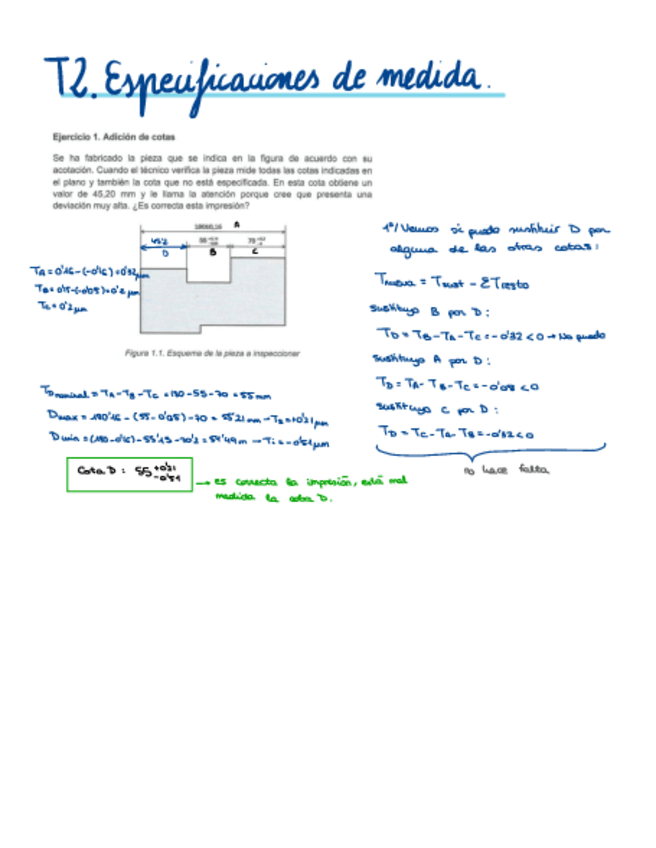 T2. Especificaciones de medida.
Ejercicio 1. Adición de cotas
Se ha fabricado la pieza que se indica en la figura de acuerdo con su
acotación. Cuando el técnico verifica la pieza mide todas las cotas indicadas en
el plano y también la cota que no está especificada. En esta cota obtiene un
valor de 45,20 mm y le llama la atención porque cree que presenta una
desviación muy alta. ¿Es correcta esta impresión?
180±0,16 A
45'2
D
B
C
TA = 0'16 - (-0'16) = 0'32 μm
TB = 0'15 - (-0'05) = 0'2 μm
TC = 0'2 μm
Figura 1.1. Esquema de la pieza a inspeccionar
1º/ Vemos si puedo sustituir D por
alguna de las otras cotas:
Tnueva = Tsust - ΣTresto
sustituyo B por D:
TD = TB - TA - TC = -0'32 < 0 → No puedo
sustituyo A por D:
TD = TA - TB - TC = -0'08 < 0
sustituyo C por D:
TD = TC - TA - TB = -0'32 < 0
no hace falta
TDnominal = TA - TB - TC = 180 - 55 - 70 = 55 mm
Dmax = 180'16 - (55 - 0'05) - 70 = 55'21 mm → Ts = +0'21 μm
Dmin = (180 - 0'16) - 55'15 - 70'2 = 54'49 m → Ti = -0'51 μm
Cota D: 55 +0'21 -0'51
→ es correcta la impresión, está mal
medida la cota D.